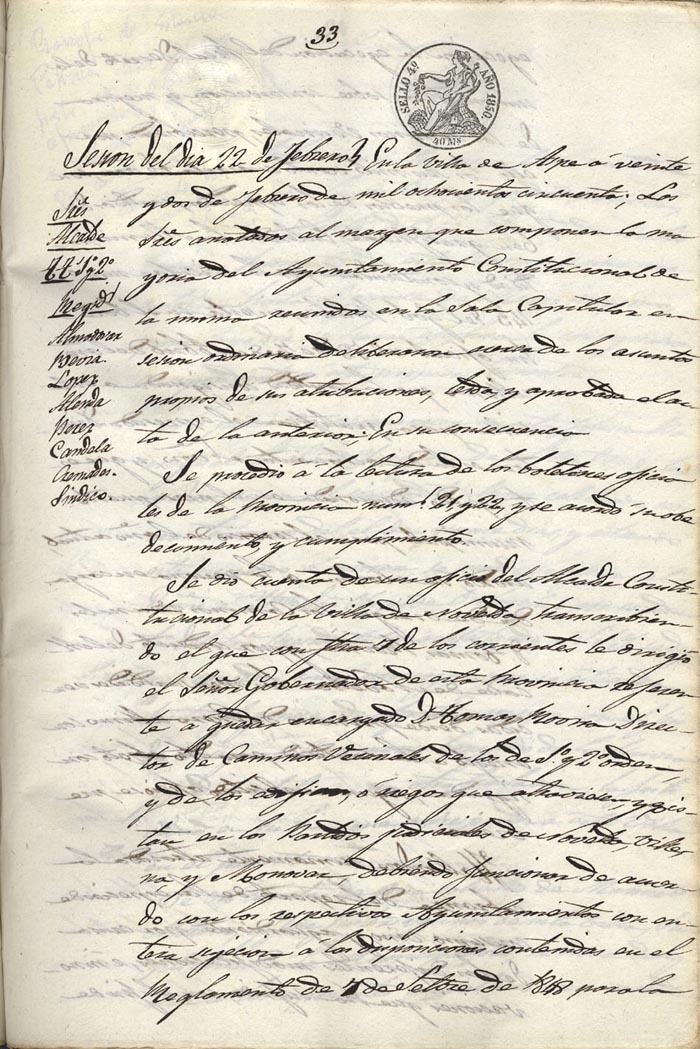 33
SELLO 4º AÑO 1850.
40 Ms
Sesion del dia 22 de Febrero
En la Villa de Aspe á veinte
y dos de Febrero de mil ochocientos cincuenta; Los
Sres anotados al margen que componen la ma
yoria del Ayuntamiento Constitucional de
la misma reunidos en la Sala Capitular en
sesion ordinaria deliberaron acerca de los asuntos
propios de sus atribuciones, leida y aprobada el ac
ta de la anterior; En su consecuencia
Se procedio á la lectura de los boletines oficia
les de la Provincia num.s 21 y 22, y se acordó su obe
decimiento, y cumplimiento
Se dio cuenta de un oficio del Alcalde Consti
tucional de la Villa de Novelda, transcribien
do el que con fha 7 de los corrientes le dirigió
el Señor Gobernador de esta Provincia referen
te a quedar encargado D. Tomas Direc
tor de Caminos Vecinales de los de 1º y 2º orden,
y de los ó riegos que atraviesen y exis
tan en los Partidos judiciales de Novelda, Ville
na, y Monovar, debiendo funcionar de acuer
do con los respectivos Ayuntamientos con en
tera sujecion á las disposiciones contenidas en el
Reglamento de 7 de Setbre de 1848 para la
Sres
Alcalde
TT 1º y 2º
Regid.s
Almodovar
Lopez
Perez
Candela
Cremades.
Sindico.